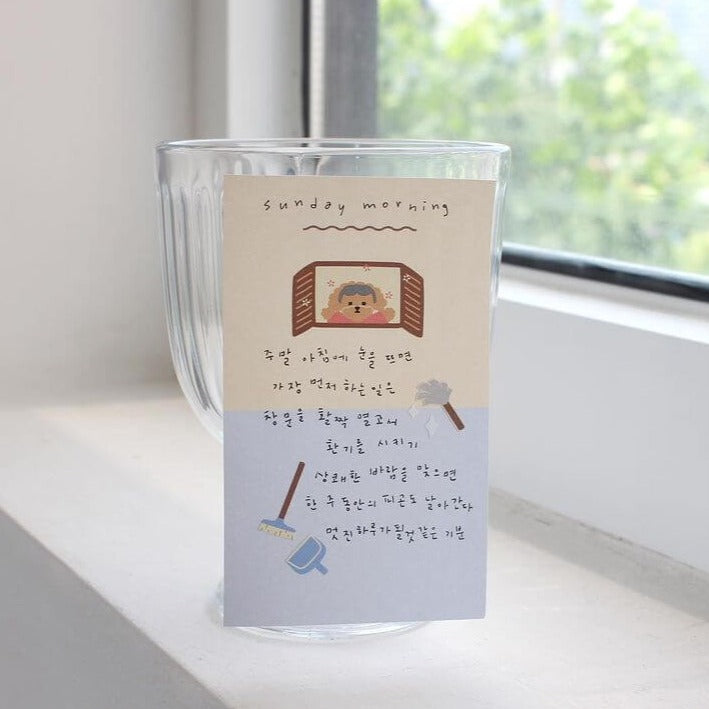 sunday morning
주말 아침에 눈을 뜨면
가장 먼저 하는일은
창문을 활짝 열고서
환기를 시키기
상쾌한 바람을 맞으면
한 주동안의 피곤도 날아간다
멋진하루가될것같은 기분